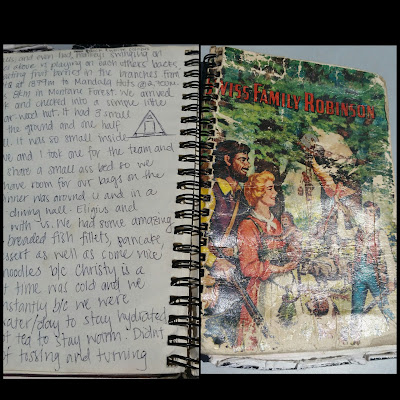 and even had
above is playing on each others' backs.
fruit berries in the branches from
at 1879m to Mandara Huts @ 2,700m.
8km in Montane Forest. We arrived
and checked into a simple little
wood hut. It had 3 small
the ground and one half
It was so small inside
and I took one for the team and
share a small ass bed so we
have room for our bags on the
inner was around 6 and in a
dining hall. Eligius and
with us. We had some amazing
breaded fish fillets, pancake,
ssert as well as some nice
noodles b/c Christy is a
t time was cold and we
nstantly b/c we were
water/day to stay hydrated
of tea to stay warm. Didnt
of tossing and turning
WISS FAMILY ROBINSON